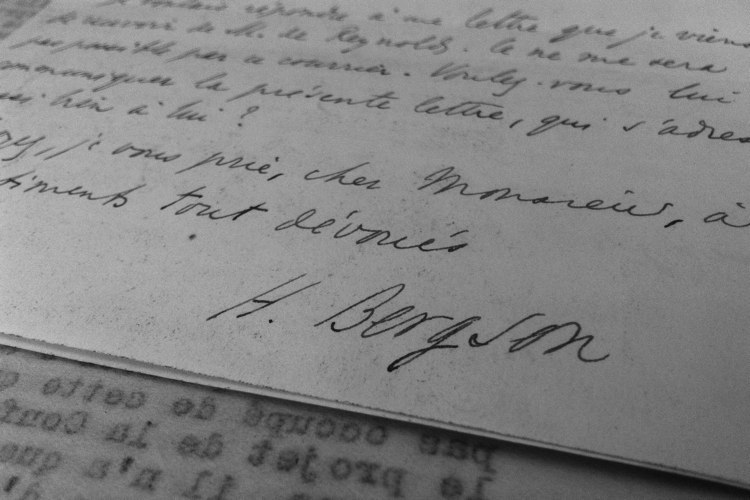 répondre à une lettre que je viens
de recevoir de M. de Reynold. Ce ne me sera
pas possible par ce courrier. Voulez-vous lui
communiquer la présente lettre, qui s'adres
si bien à lui ?
je vous prie, cher Monsieur, à
timents tout dévoués
H. Bergson
pas occupé de cette
le projet de la Cont
il n'a que